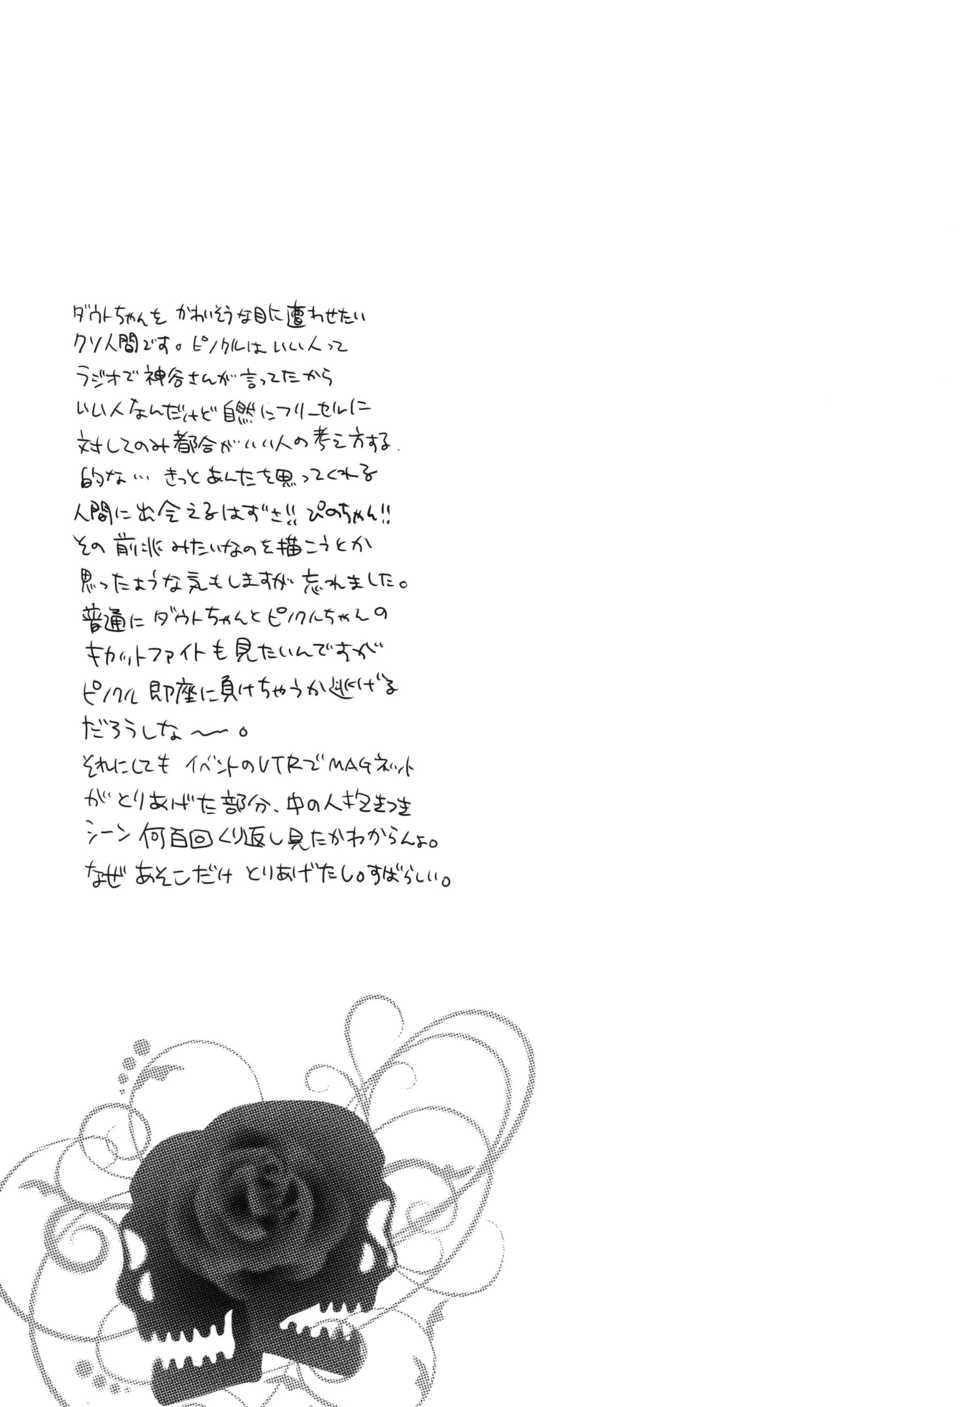 ダウトちゃんを かわいそうな目に遭わせたい
クソ人間です。ピノクルはいい人って
ラジオで神谷さんが言ってたから
いい人なんだけど自然にフリーセルに
対してのみ都合がいい人の考え方する
的な… きっとあんたを思ってくれる
人間に出会えるはずさ!! ぴのちゃん!!
その前兆みたいなのを描こうとか
思ったような気もしますが忘れました。
普通にダウトちゃんとピノクルちゃんの
キャットファイトも見たいんですが
ピノクル即座に負けちゃうか逃げる
だろうしな〜。
それにしても イベントのVTRでMAGネット
がとりあげた部分、中の人抱きつき
シーン何百回くり返し見たかわからんよ。
なぜ あそこだけ とりあげたし。すばらしい。